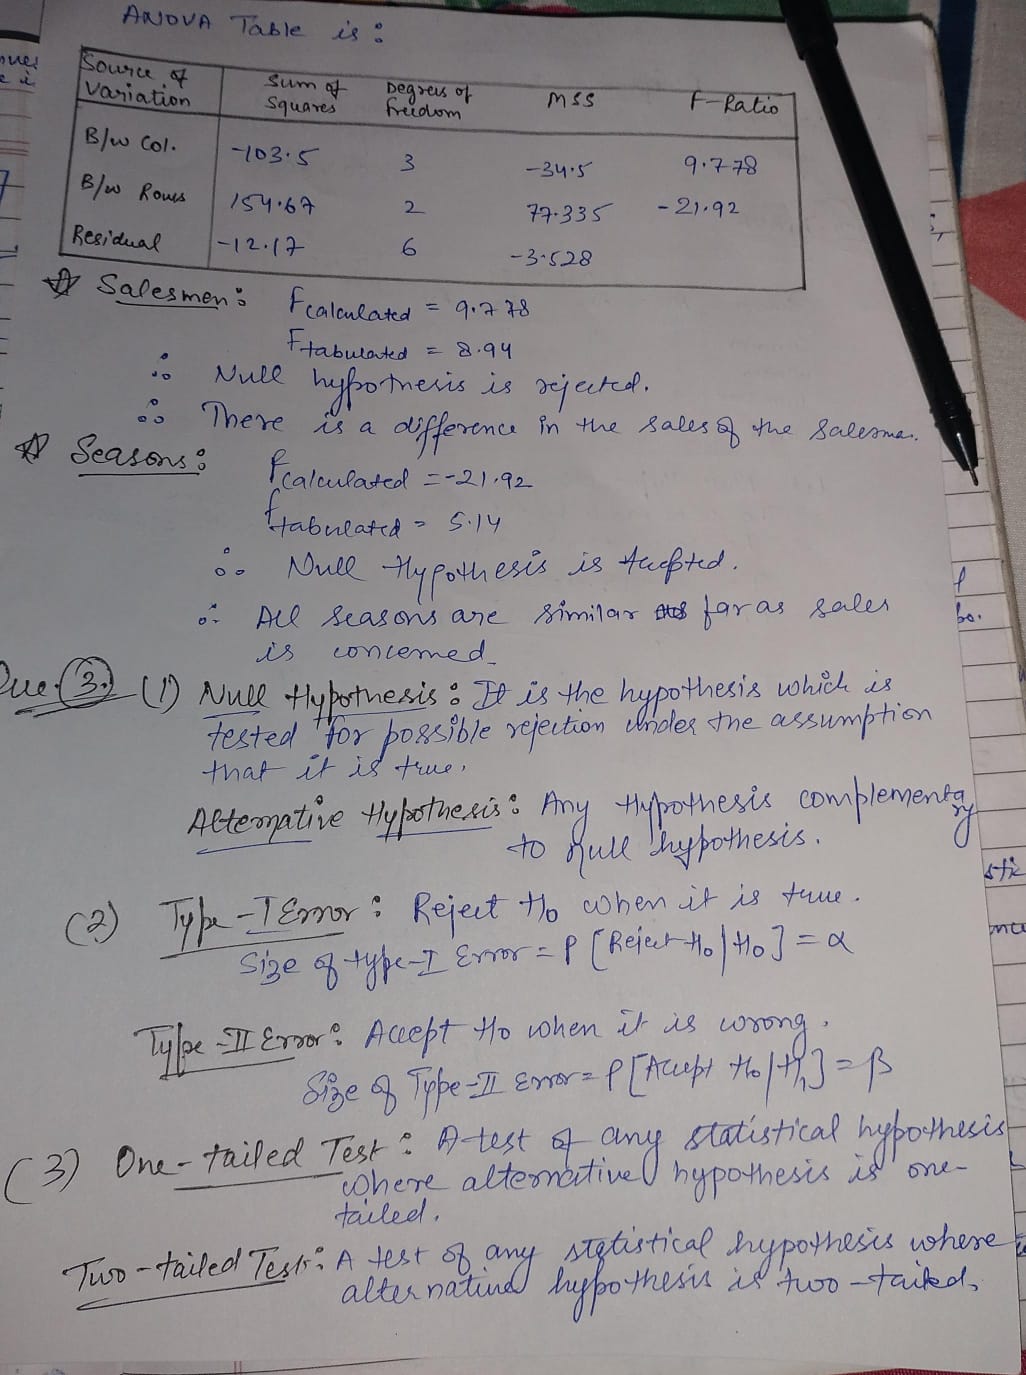 ANOVA Table is :
Source of Variation Sum of Squares Degrees of freedom MSS F-Ratio
B/w Col. -103.5 3 -34.5 9.778
B/w Rows 154.67 2 77.335 -21.92
Residual -12.17 6 -3.528
Salesmen : Fcalculated = 9.778
Ftabulated = 8.94
∴ Null hypothesis is rejected.
∴ There is a difference in the sales of the Salesman.
Seasons : Fcalculated = -21.92
Ftabulated = 5.14
∴ Null Hypothesis is Accepted.
∴ All seasons are similar far as sales
is concerned
Que. (3.) (1) Null Hypothesis : It is the hypothesis which is
tested for possible rejection under the assumption
that it is true.
Alternative Hypothesis : Any Hypothesis complementary
to null hypothesis.
(2) Type-I Error : Reject Ho when it is true.
Size of type-I Error = P [Reject Ho | Ho] = α
Type-II Error : Accept Ho when it is wrong.
Size of Type-II Error = P [Accept Ho | H1] = β
(3) One-tailed Test : A test of any statistical hypothesis
where alternative hypothesis is one-
tailed.
Two-tailed Test : A test of any statistical hypothesis where
alternative hypothesis is two-tailed.